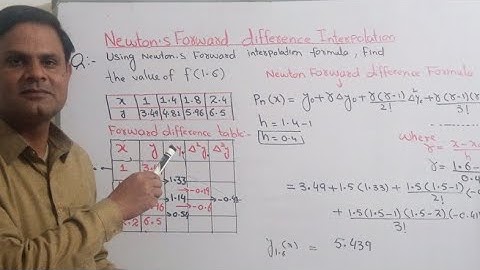 Newton's Forward difference Interpolation
Q:- Using Newton's Forward interpolation formula, find
the value of f(1.6)
x 1 1.4 1.8 2.4
y 3.49 4.81 5.96 6.5
Forward difference table-
x y Δ²y Δ³y
1
1.33
-0.19
1.14 -0.41
-0.6
6.5 0.54
Newton Forward difference Formula
Pn(x) = y₀+rΔy₀+r(r-1)/2! Δ²y₀+
h = 1.4-1
h = 0.4
where
r = x-x₀/h
r = 1.6-
= 3.49+1.5(1.33)+1.5(1.5-1)/2!
+ 1.5(1.5-1)(1.5-2)/3!
y₁.₆(x) = 5.439